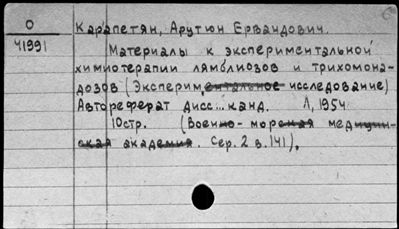 О
41991
Карапетян, Арутюн Ервандович.
Материалы к экспериментальной
химиотерапии лямблиозов и трихомона-
дозов (Экспериментальное исследование)
Автореферат дисс... канд. Л, 1954
10стр. (Военно-морская медицин-
ская академия. Сер. 2 в. 141).